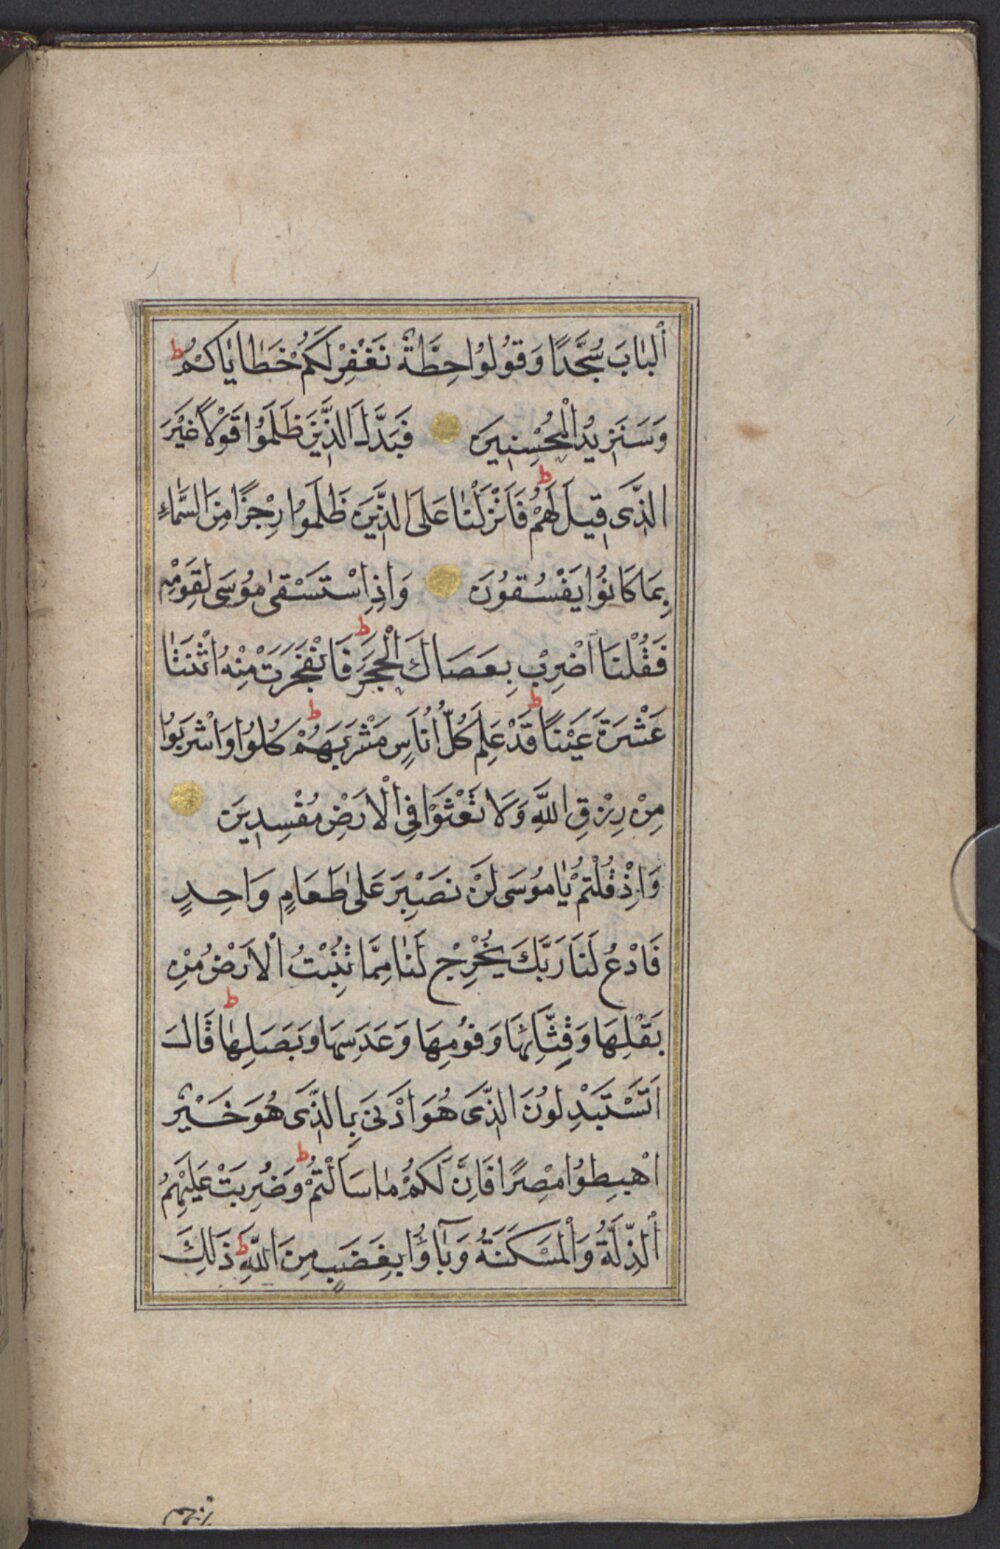 ٱلْبَابَ سُجَّدًا وَقُولُوا حِطَّةٌ نَغْفِرْ لَكُمْ خَطَايَاكُمْ ط
وَسَنَزِيدُ الْمُحْسِنِينَ فَبَدَّلَ الَّذِينَ ظَلَمُوا قَوْلًا غَيْرَ
الَّذِى قِيلَ لَهُمْ ط فَاَنْزَلْنَا عَلَى الَّذِينَ ظَلَمُوا رِجْزًا مِنَ السَّمَاءِ
بِمَا كَانُوا يَفْسُقُونَ وَاِذِ اسْتَسْقٰى مُوسَى لِقَوْمِهِ
فَقُلْنَا اضْرِبْ بِعَصَاكَ الْحَجَرَ ط فَانْفَجَرَتْ مِنْهُ اثْنَتَا
عَشْرَةَ عَيْنًا ط قَدْ عَلِمَ كُلُّ اُنَاسٍ مَشْرَبَهُمْ ط كُلُوا وَاشْرَبُوا
مِنْ رِزْقِ اللَّهِ وَلَا تَعْثَوْا فِى الْاَرْضِ مُفْسِدِينَ
وَاِذْ قُلْتُمْ يَامُوسَى لَنْ نَصْبِرَ عَلٰى طَعَامٍ وَاحِدٍ
فَادْعُ لَنَا رَبَّكَ يُخْرِجْ لَنَا مِمَّا تُنْبِتُ الْاَرْضُ مِنْ
بَقْلِهَا وَقِثَّائِهَا وَفُومِهَا وَعَدَسِهَا وَبَصَلِهَا ط قَالَ
اَتَسْتَبْدِلُونَ الَّذِى هُوَ اَدْنَى بِالَّذِى هُوَ خَيْرٌ
اهْبِطُوا مِصْرًا فَاِنَّ لَكُمْ مَا سَاَلْتُمْ ط وَضُرِبَتْ عَلَيْهِمُ
ٱلذِّلَّةُ وَالْمَسْكَنَةُ وَبَاؤُا بِغَضَبٍ مِنَ اللَّهِ ط ذَلِكَ